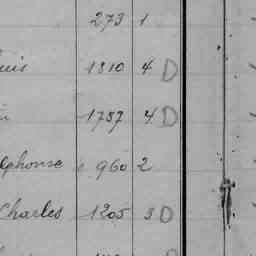 273 1
uis 1810 4 D
1787 4 D
lphonse 960 2
Charles 1205 3 D